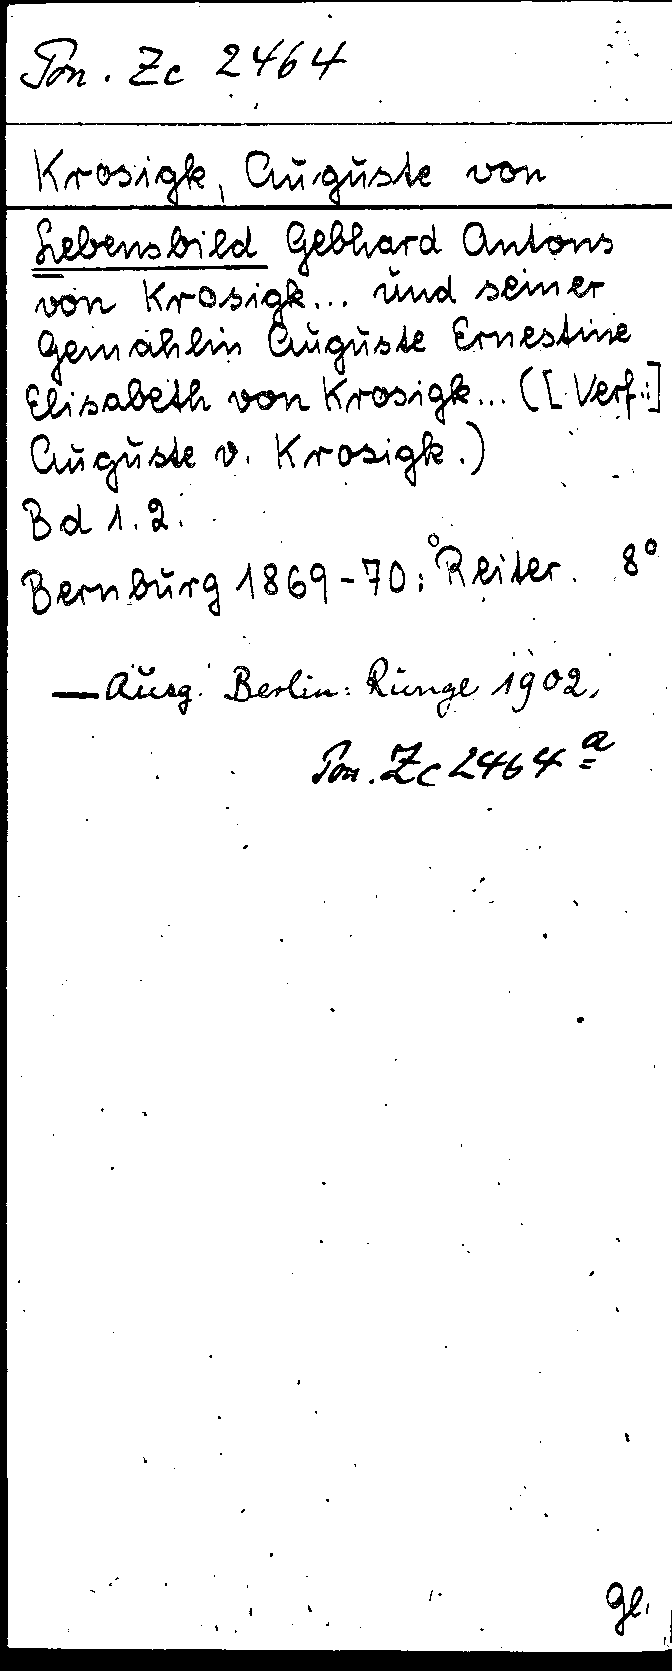 Pon. Zc 2464
Krosigk, Auguste von
Lebensbild Gebhard Antons
von Krosigk... und seiner
Gemahlin Auguste Ernestine
Elisabeth von Krosigk... ([Verf.:]
Auguste v. Krosigk.)
Bd 1.2.
Bernburg 1869-70: Reiter. 8°
— Ausg. Berlin: Runge 1902.
Pon. Zc 2464 a
gl.